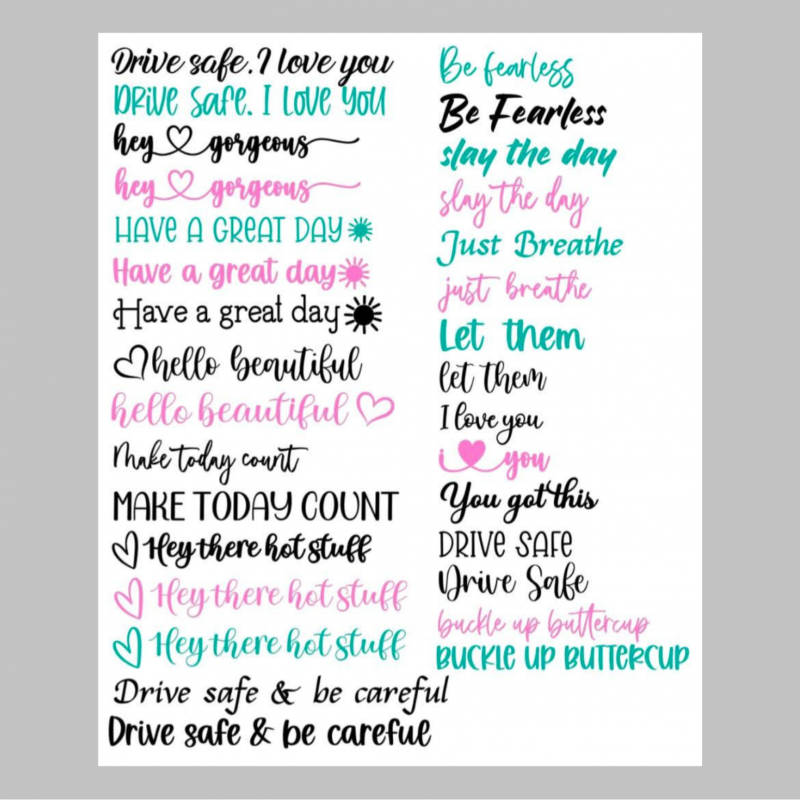 Drive safe. I love you
DRIVE SAFE. I LOVE YOU
hey gorgeous
hey gorgeous
HAVE A GREAT DAY
Have a great day
Have a great day
hello beautiful
hello beautiful
Make today count
MAKE TODAY COUNT
Hey there hot stuff
Hey there hot stuff
Hey there hot stuff
Drive safe & be careful
Drive safe & be careful
Be fearless
Be Fearless
slay the day
slay the day
Just Breathe
just breathe
Let them
let them
I love you
i you
You got this
DRIVE SAFE
Drive Safe
buckle up buttercup
BUCKLE UP BUTTERCUP